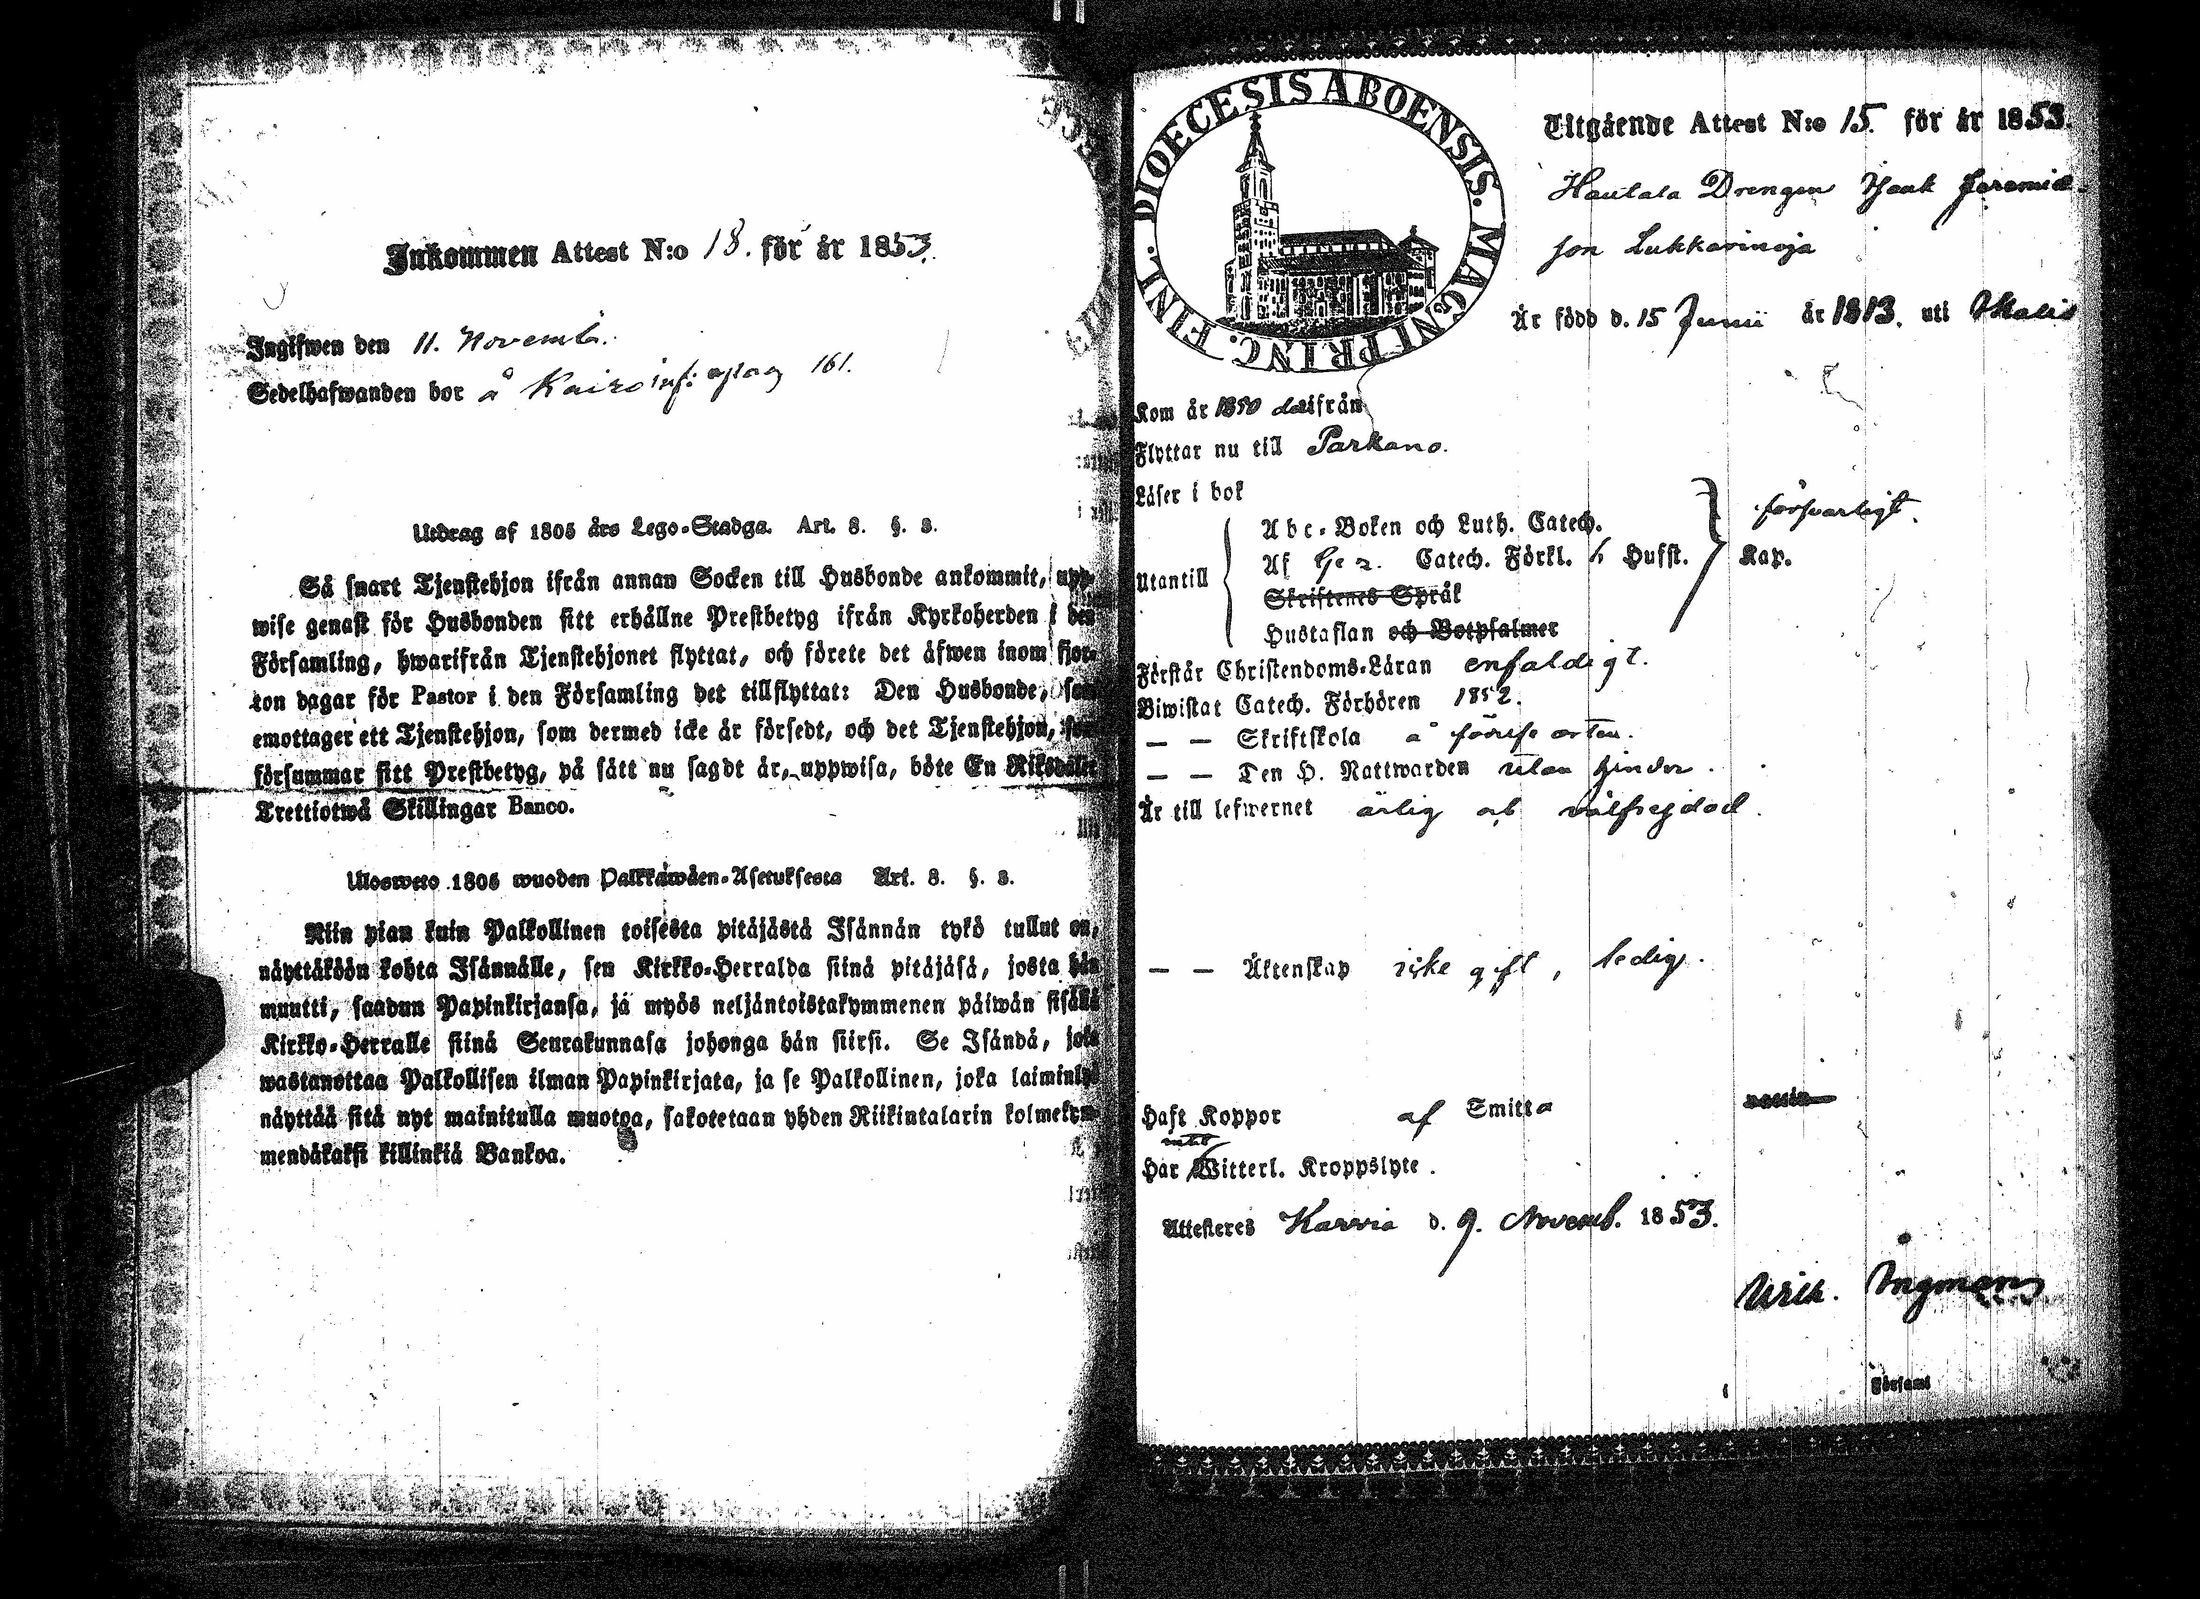 Inkommen Attest N:o 18. för år 1853.
Ingifwen den 11. Novemb.
Sedelhafwanden bor å 161.
Utdrag af 1805 års Lego-Stadga. Art. 8. §. 3.
Så snart Tjenstehjon ifrån annan Socken till Husbonde ankommit, upp-
wise genast för Husbonden sitt erhållne Prestbetyg ifrån Kyrkoherden i den
Församling, hwarifrån Tjenstehjonet flyttat, och förete det äfwen inom fjor-
ton dagar för Pastor i den Församling det tillflyttat: Den Husbonde, som
emottager ett Tjenstehjon, som dermed icke är försedt, och det Tjenstehjon, som
försummar sitt Prestbetyg, på sätt nu sagdt är, uppwisa, böte En Riksdaler
Trettiotwå Skillingar Banco.
Ulosweto 1805 wuoden Palkkawäen-Asetuksesta Art. 8. §. 3.
Niin pian kuin Palkollinen toisesta pitäjästä Isännän tykö tullut on,
näyttäköön kohta Isännälle, sen Kirkko-Herralda siinä pitäjäsä, josta hän
muutti, saadun Papinkirjansa, ja myös neljäntoistakymmenen päiwän sisällä
Kirkko-Herralle siinä Seurakunnasa johonga hän siirsi. Se Isändä, joka
wastanottaa Palkollisen ilman Papinkirjata, ja se Palkollinen, joka laiminlyö
näyttää sitä nyt mainitulla muotoa, sakotetaan yhden Riikintalarin kolmekym-
mendäkaksi killinkiä Bankoa.
DIOECESIS ABOENSIS. MAGNI PRINC. FINL.
Utgående Attest N:o 15. för år 1853.
Hautala Drengen Isak Jeremia-
son Lukkarinoja
Är född d. 15 Junii år 1813. uti Ikalis
Kom år 1850 därifrån
Flyttar nu till Parkano.
Läser i bok försvarligt.
Utantill Abc-Boken och Luth. Catech.
Af Catech. Förkl. 6 Hufst. Kap.
Skriftenes Språk
Hustaflan och Botpsalmer
Förstår Christendoms-Läran enfaldigt.
Biwistat Catech. Förhören 1852.
— — Skriftskola å orten.
— — Den H. Nattwarden utan hinder.
Är till lefwernet ärlig och välfrejdad.
— — Äktenskap icke gift, ledig.
Haft Koppor af Smitta
Har Witterl. Kroppslyte.
Attesteres Karvia d. 9. Novemb. 1853.
Wilh. Ingman
Församl